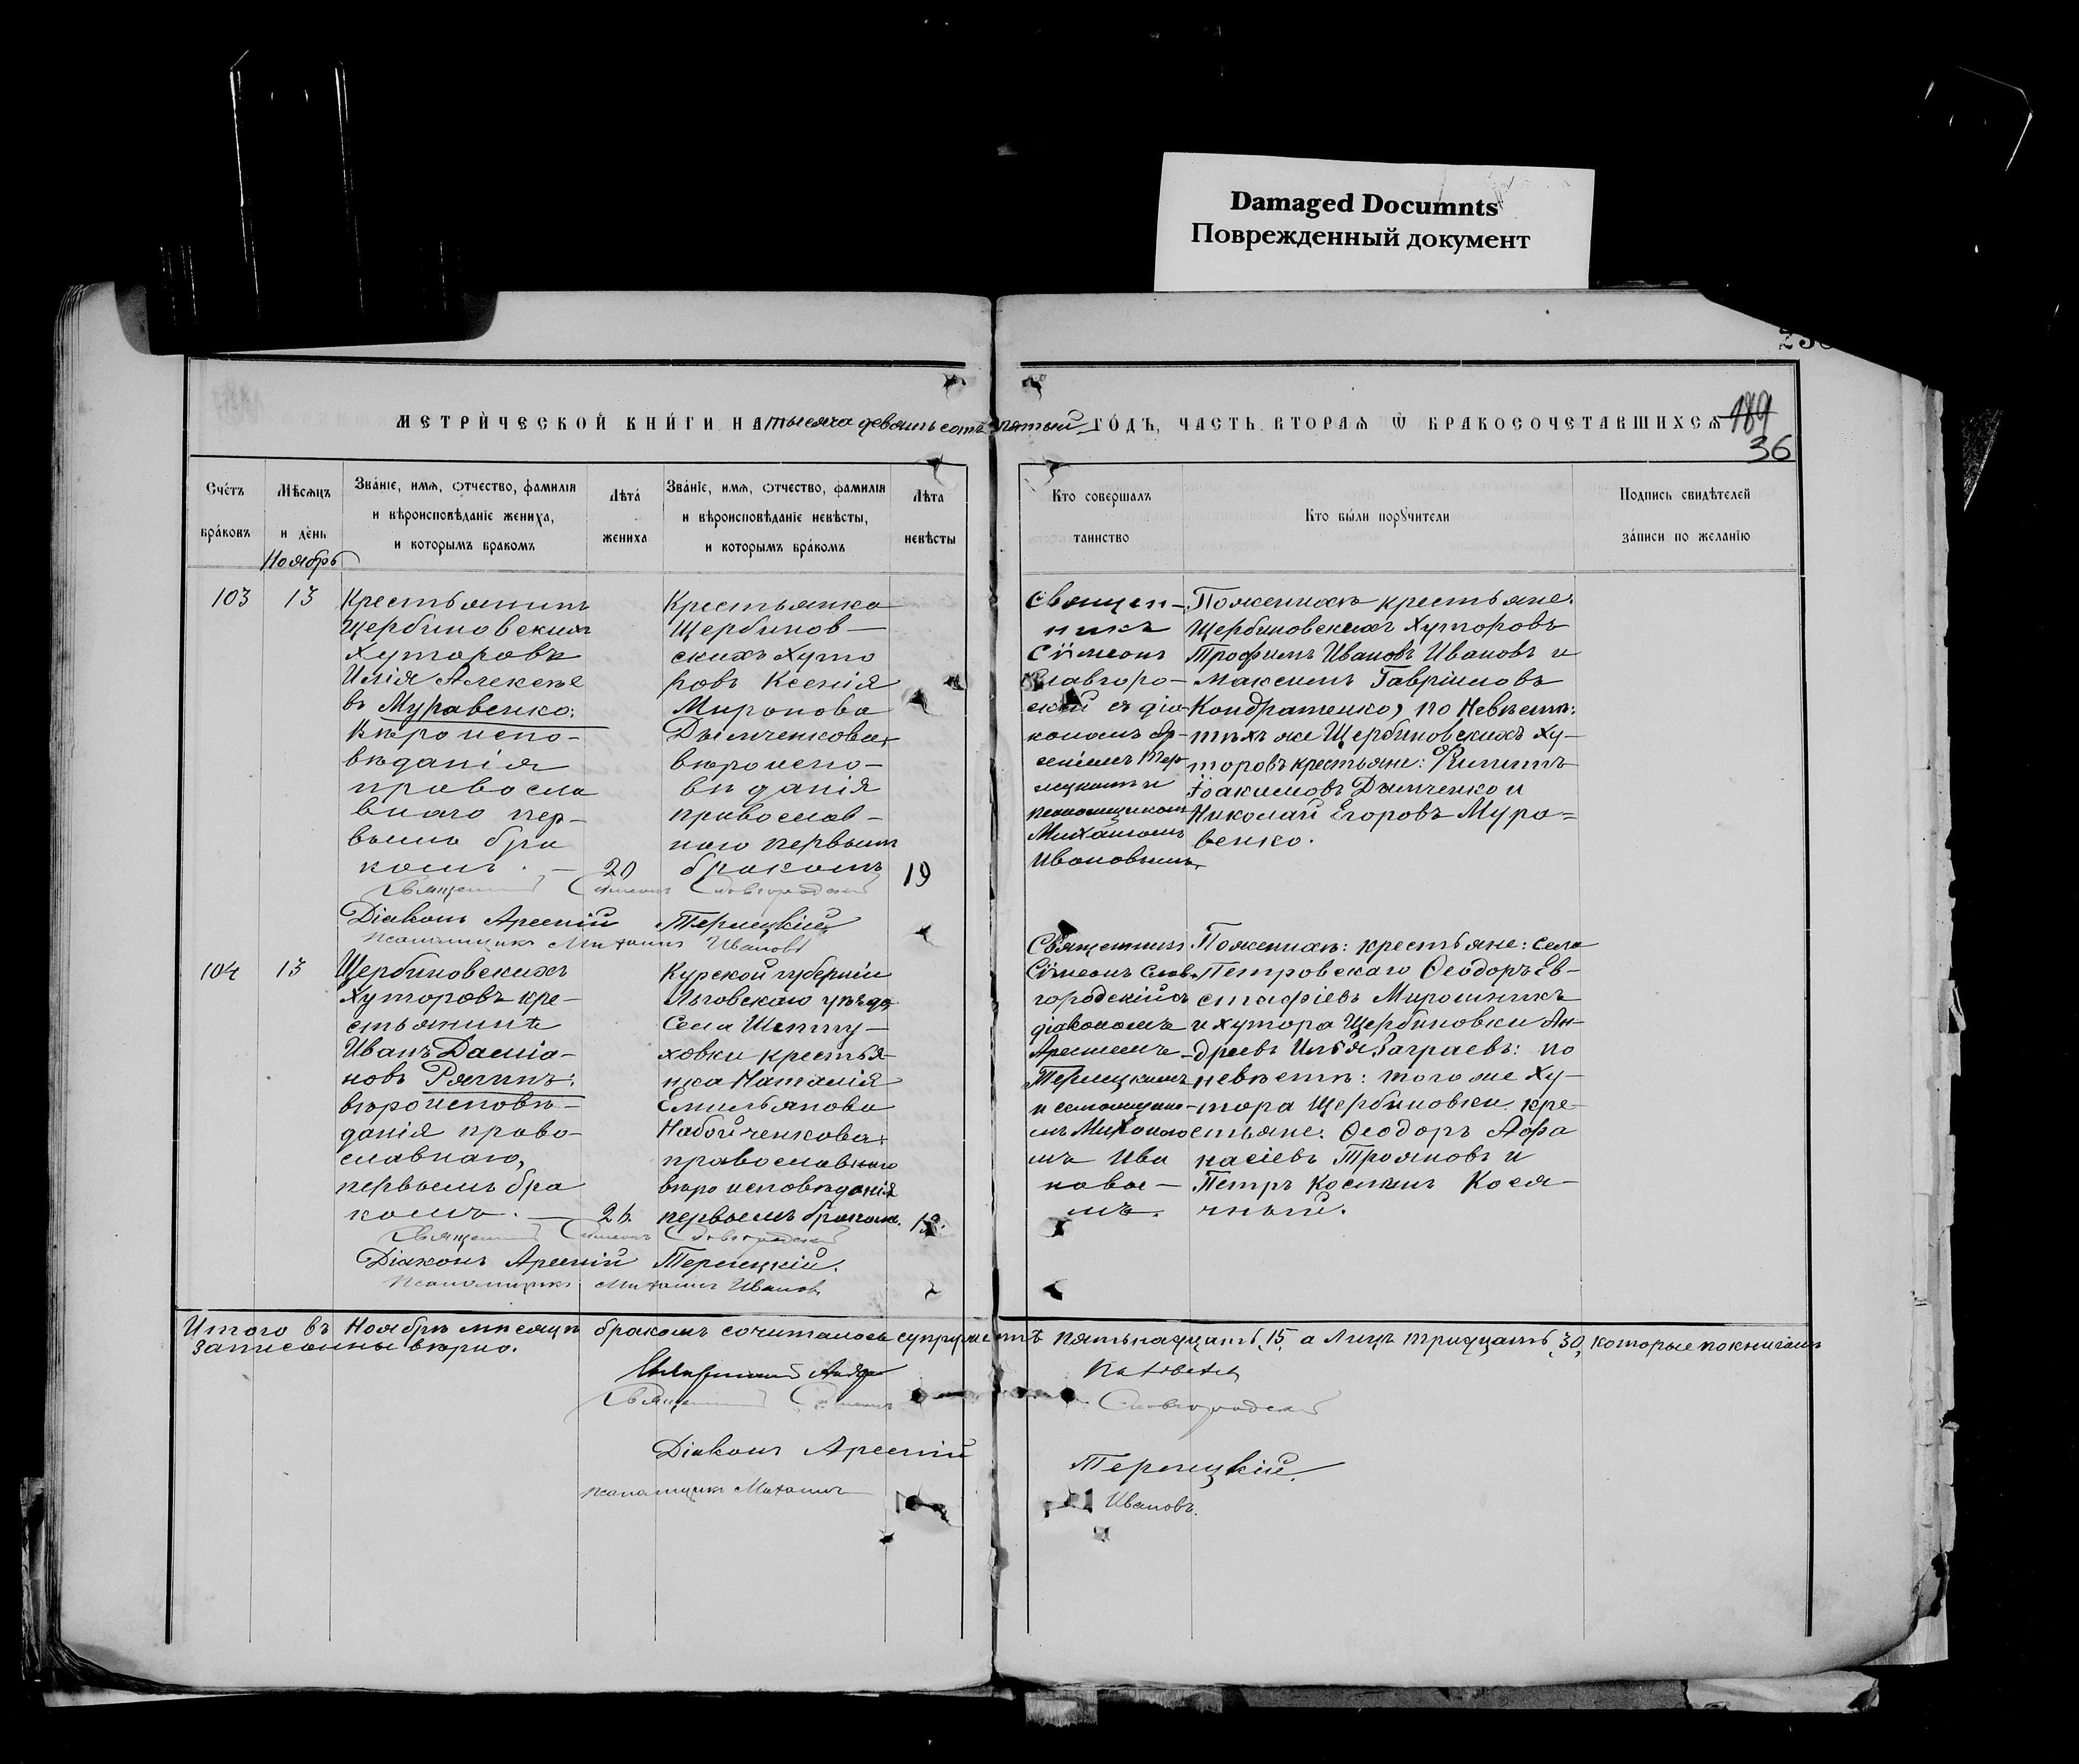 Damaged Documnts
Поврежденный документ
МЕТРИЧЕСКОЙ КНИГИ НА тысяча девятьсотъ пятый ГОДЪ, ЧАСТЬ ВТОРАЯ Ѡ БРАКОСОЧЕТАВШИХСЯ
189
36
Счетъ браковъ
Мѣсяцъ и день
Званіе, имя, отчество, фамилія и вѣроисповѣданіе жениха, и которымъ бракомъ
Лѣта жениха
Званіе, имя, отчество, фамилія и вѣроисповѣданіе невѣсты, и которымъ бракомъ
Лѣта невѣсты
Кто совершалъ таинство
Кто были поручители
Подпись свидѣтелей записи по желанію
Ноябрь
103
13
Крестьянинъ
Щербиновскихъ
Хуторовъ
Илія Алексѣе
въ Муравенко:
Вѣроиспо-
вѣданія
правосла
внаго пер-
вымъ бра
комъ. —
20
Крестьянка
Щербинов-
скихъ Хуто
ровъ Ксенія
Миронова
Дымченкова,
вѣроиспо-
вѣданія
православ-
наго первымъ
бракомъ
19
Священ-
никъ
Сѵмеонъ
Славгоро-
скій съ діа-
кономъ Ар-
сеніемъ Тер-
лецкимъ и
псаломщикомъ
Михаиломъ
Ивановымъ
По женихѣ крестьяне:
Щербиновскихъ Хуторовъ
Трофимъ Ивановъ Ивановъ и
Максимъ Гавріиловъ
Кондратенко, по Невѣстѣ:
тѣхъ же Щербиновскихъ Ху-
торовъ крестьяне: Филиппъ
Іоакимовъ Дымченко и
Николай Егоровъ Мура=
венко.
Священникъ Сѵмеонъ Славгородскій
Діаконъ Арсеній Терлецкій
Псаломщикъ Михаилъ Ивановъ
104
13
Щербиновскихъ
Хуторовъ кре-
стьянинъ
Иванъ Даміа-
новъ Рягинъ:
вѣроисповѣ-
данія право-
славнаго,
первымъ бра
комъ. —
Курской губерніи
Льговскаго уѣзда
Села Шепту-
ховки крестья-
нка Наталія
Емильянова
Набойченкова,
православнаго
вѣроисповѣданія
первымъ бракомъ.
Священникъ
Сѵмеонъ Слав-
городскій съ
діакономъ
Арсеніемъ
Терлецкимъ
и псаломщико-
мъ Михаило
мъ Ива
новы-
мъ.
По женихѣ: крестьяне: села
Петровскаго Ѳеодоръ Ев-
стафіевъ Мирошникъ
и хутора Щербиновки Ан-
дреевъ Илья Заграевъ: по
невѣстѣ: того же Ху-
тора Щербиновки кре-
стьяне: Ѳеодоръ Афа
насіевъ Трояновъ и
Петръ Косминъ Кося-
чный.
Священникъ Сѵмеонъ Славгородскій
Діаконъ Арсеній Терлецкій.
Псаломщикъ Михаилъ Ивановъ
Итого въ Ноябрѣ мѣсяцѣ бракомъ сочиталось супружествъ пятьнадцать, 15, а Лицъ тридцать, 30, которые по книгамъ
записанны вѣрно.
Священникъ Сѵмеонъ Славгородскій
Діаконъ Арсеній Терлецкій.
псаломщикъ Михаилъ Ивановъ.